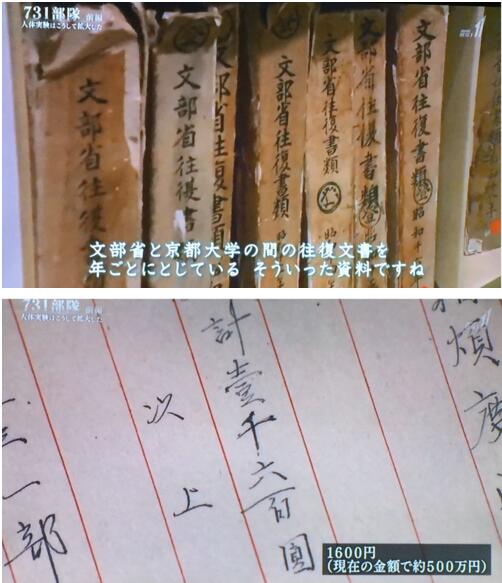 731部隊 前編
人体実験はこうして拡大した
文部省往復
文部省往復書
文部省往復書類
文部省往復書類 昭
文部省往復書類 昭和
文部省往復書類 昭和十
文部省と京都大学の間の往復文書を
年ごとにとじている そういった資料ですね
731部隊 前編
人体実験はこうして拡大した
煩度
計壹千六百圓
次上
三一部
1600円
(現在の金額で約500万円)